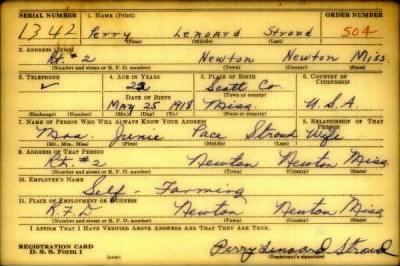 SERIAL NUMBER 1. NAME (Print) ORDER NUMBER
1342 Perry Lenoard Stroud 504
(First) (Middle) (Last)
2. ADDRESS (Print)
Rt. #2 Newton Newton Miss.
(Number and street or R. F. D. number) (Town) (County) (State)
3. TELEPHONE 4. AGE IN YEARS 5. PLACE OF BIRTH 6. COUNTRY OF CITIZENSHIP
22 Scott Co.
DATE OF BIRTH (Town or county)
May 25 1918 Miss. U.S.A.
(Exchange) (Number) (Mo.) (Day) (Yr.) (State or country)
7. NAME OF PERSON WHO WILL ALWAYS KNOW YOUR ADDRESS 8. RELATIONSHIP OF THAT PERSON
Mrs. Pace Stroud Wife
(Mr., Mrs., Miss) (First) (Middle) (Last)
9. ADDRESS OF THAT PERSON
Rt. #2 Newton Newton Miss.
(Number and street or R. F. D. number) (Town) (County) (State)
10. EMPLOYER'S NAME
Self - Farming
11. PLACE OF EMPLOYMENT OR BUSINESS
R.F.D Newton Newton Miss
(Number and street or R. F. D. number) (Town) (County) (State)
I AFFIRM THAT I HAVE VERIFIED ABOVE ANSWERS AND THAT THEY ARE TRUE.
REGISTRATION CARD
D. S. S. Form 1 (over) Perry Lenoard Stroud
(Registrant's signature)